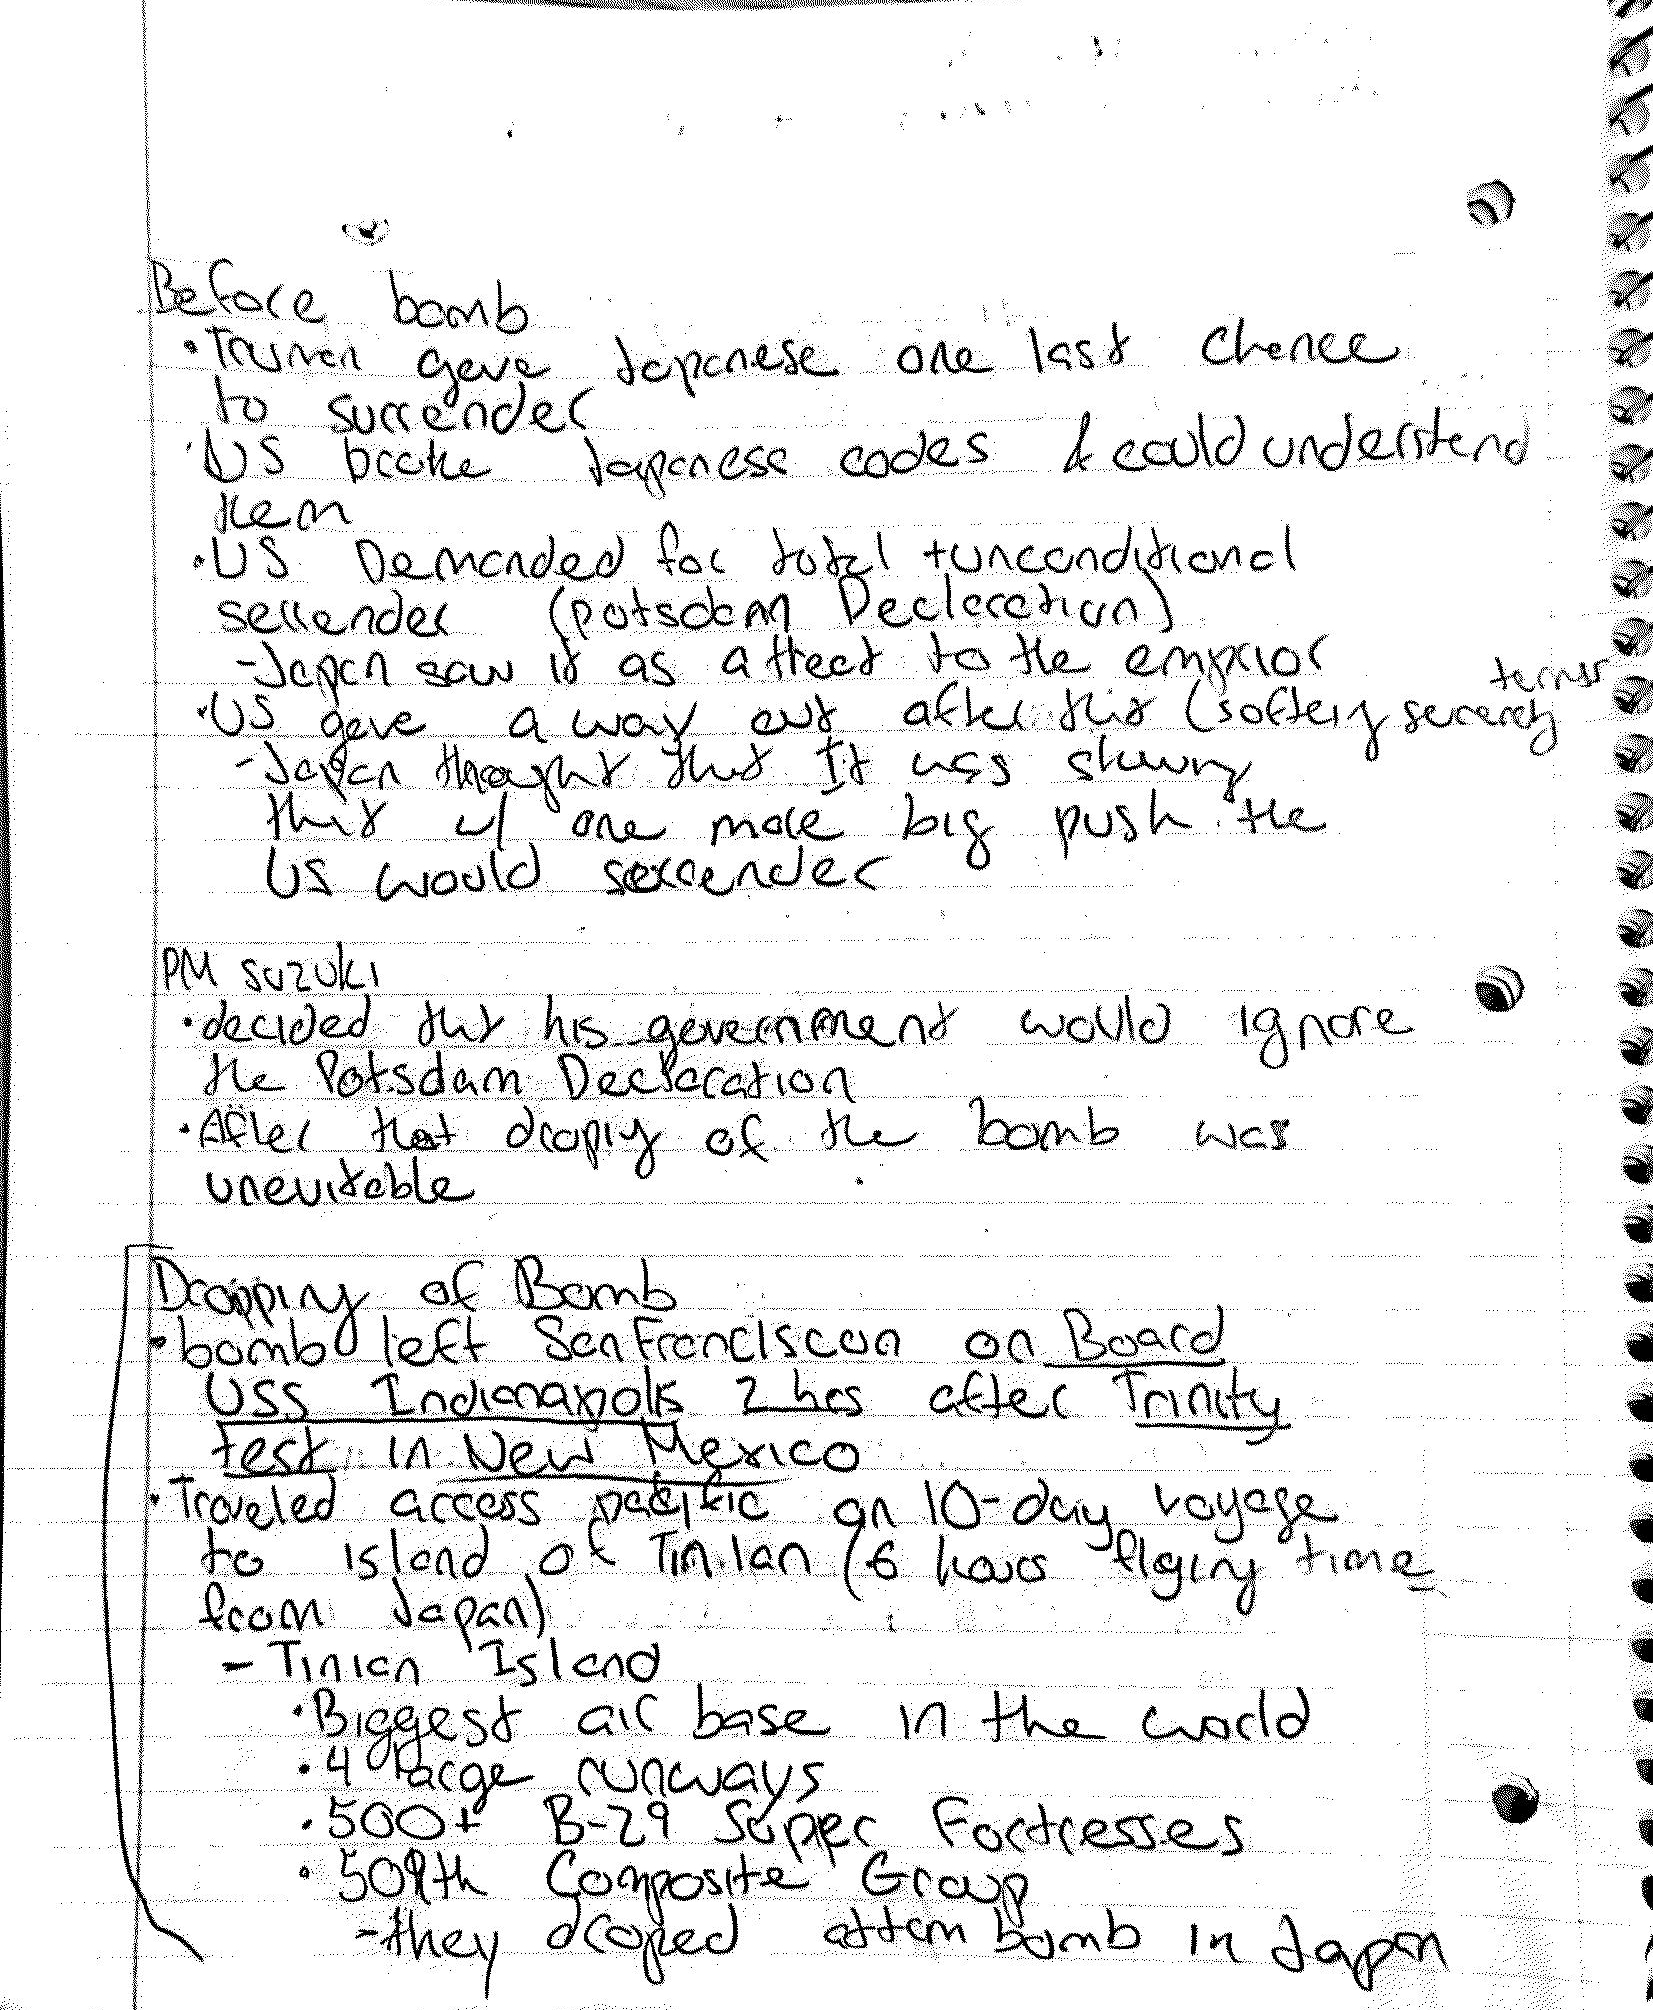 Before bomb
• Truman gave Japanese one last chance
to surrender
• US broke Japanese codes & could understand
them
• US Demanded for total + unconditional
serrender (potsdam Declaration)
- Japan saw it as a threat to the emperor
terms
• US gave a way out after that (softeing
- Japan thought that It was showing
that w/ one more big push the
US would serrender
PM SUZUKI
• decided that his government would ignore
the Potsdam Declaration
• After that droping of the bomb was
unevitable
Dropping of Bomb
• bomb left San Franciscon on Board
USS Indianapolis 2 hrs after Trinity
test in New Mexico
• Traveled access pacific on 10-day voyage
to island of Tinian (6 hours flying time
from Japan)
- Tinian Island
• Biggest air base in the world
• 4 large runways
• 500+ B-29 Super Fortresses
• 509th Composite Group
- they droped attem bomb in Japan